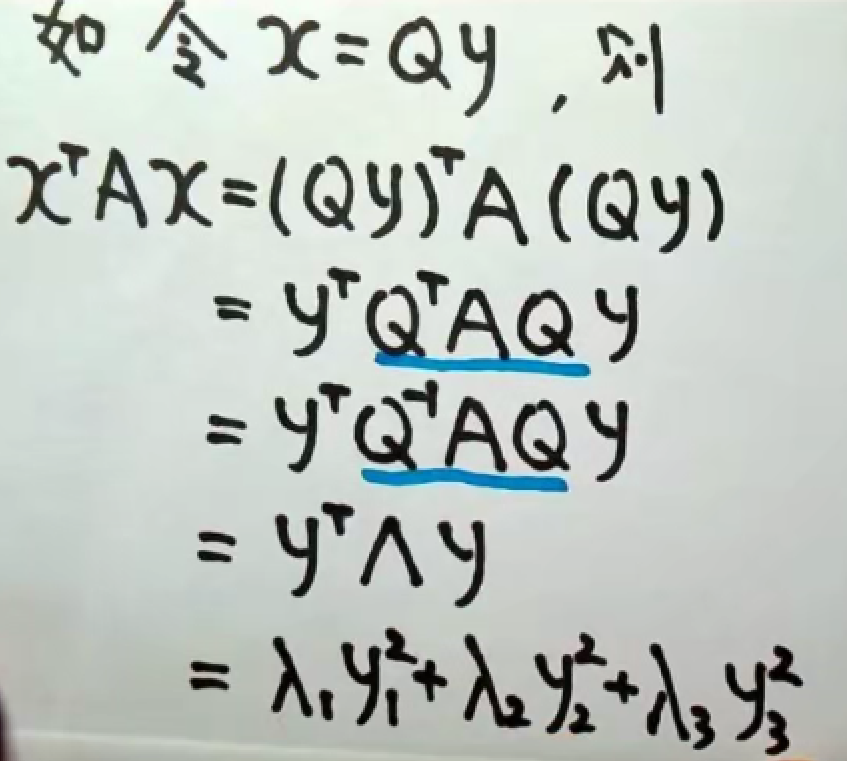 如令 x=Qy, 则
xᵀAx=(Qy)ᵀA(Qy)
= yᵀQᵀAQy
= yᵀQ⁻¹AQy
= yᵀΛy
= λ₁y₁²+λ₂y₂²+λ₃y₃²